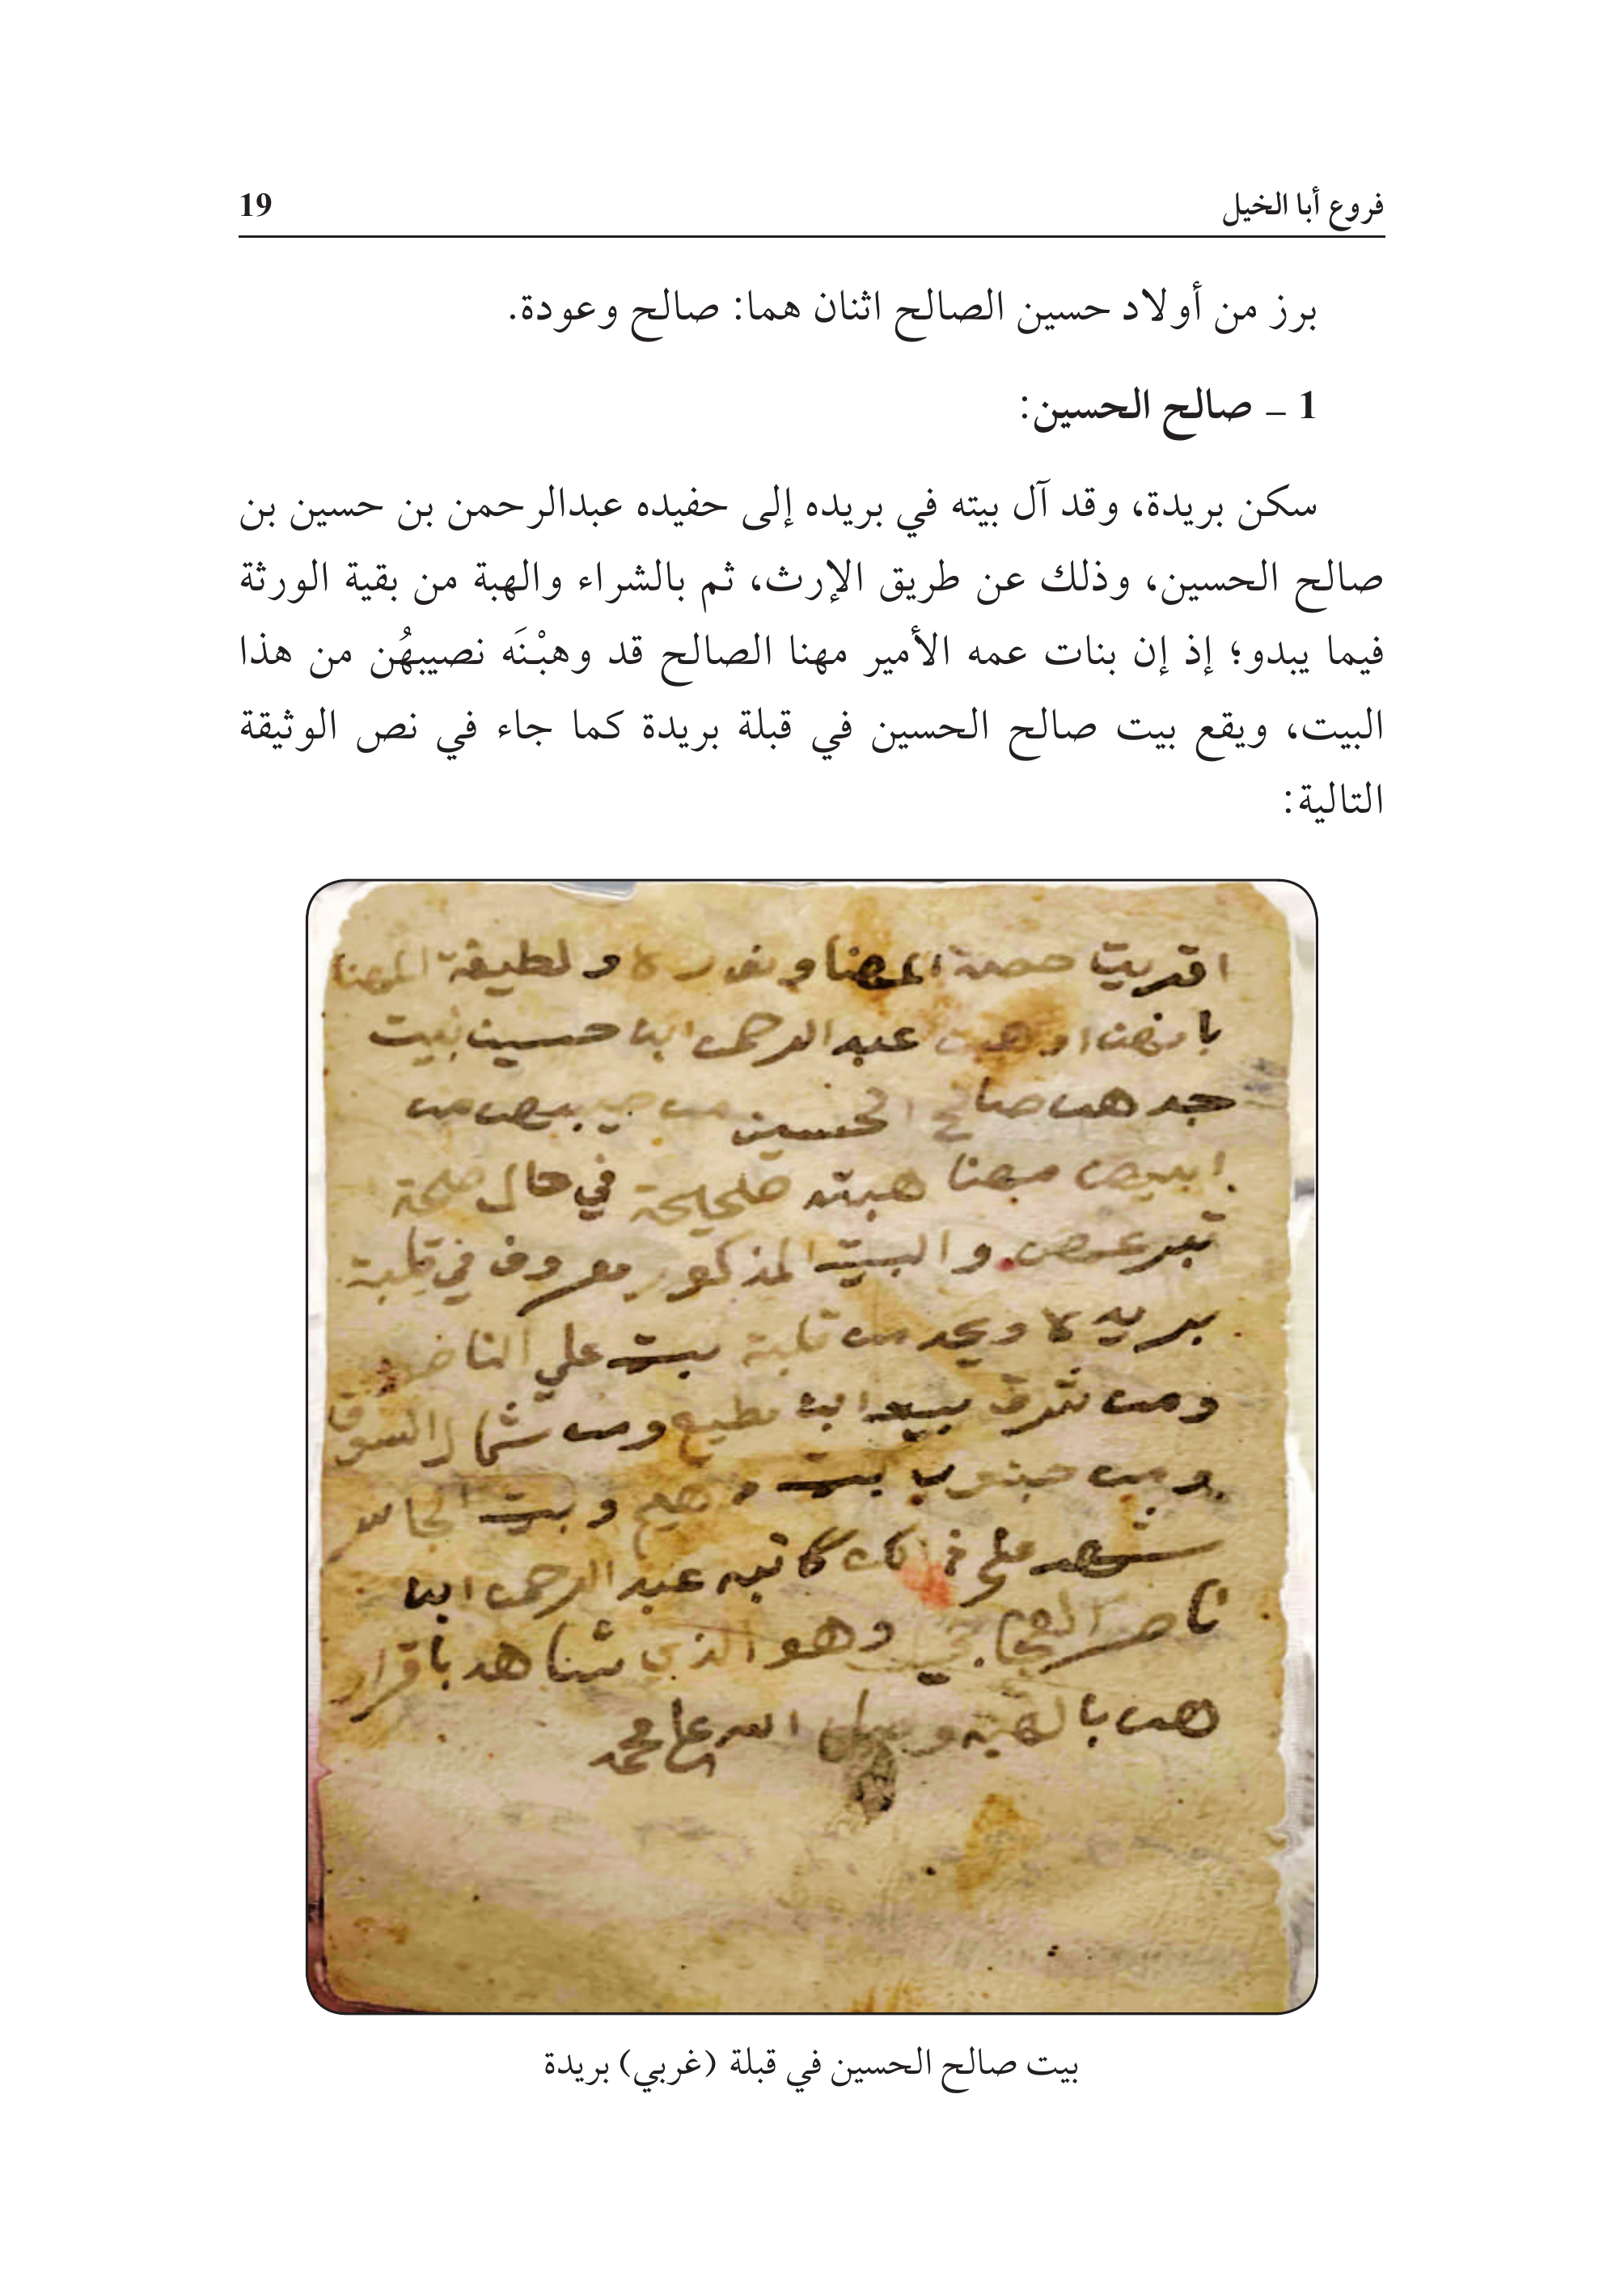 فروع أبا الخيل 19
برز من أولاد حسين الصالح اثنان هما: صالح وعودة.
1 – صالح الحسين:
سكن بريدة، وقد آل بيته في بريده إلى حفيده عبدالرحمن بن حسين بن
صالح الحسين، وذلك عن طريق الإرث، ثم بالشراء والهبة من بقية الورثة
فيما يبدو؛ إذ إن بنات عمه الأمير مهنا الصالح قد وهبْنَه نصيبهُن من هذا
البيت، ويقع بيت صالح الحسين في قبلة بريدة كما جاء في نص الوثيقة
التالية:
المهنا ونوره ولطيفة المهنا
عبد الرحمن ابن حسين بيت
جدهن صالح الحسين من
مهنا هبته في حال
والبيت المذكور معروف في قلبة
بريده ويحد من قلبة بيت علي الناصر
ومن شرق ابن مطيع ومن شمال السوق
ومن جنوب بيت وبيت
شهد على ذلك كاتبه عبد الرحمن ابن
ناصر وهو الذي شاهد باقرار
هن بالهبه وصلى الله على محمد
بيت صالح الحسين في قبلة (غربي) بريدة